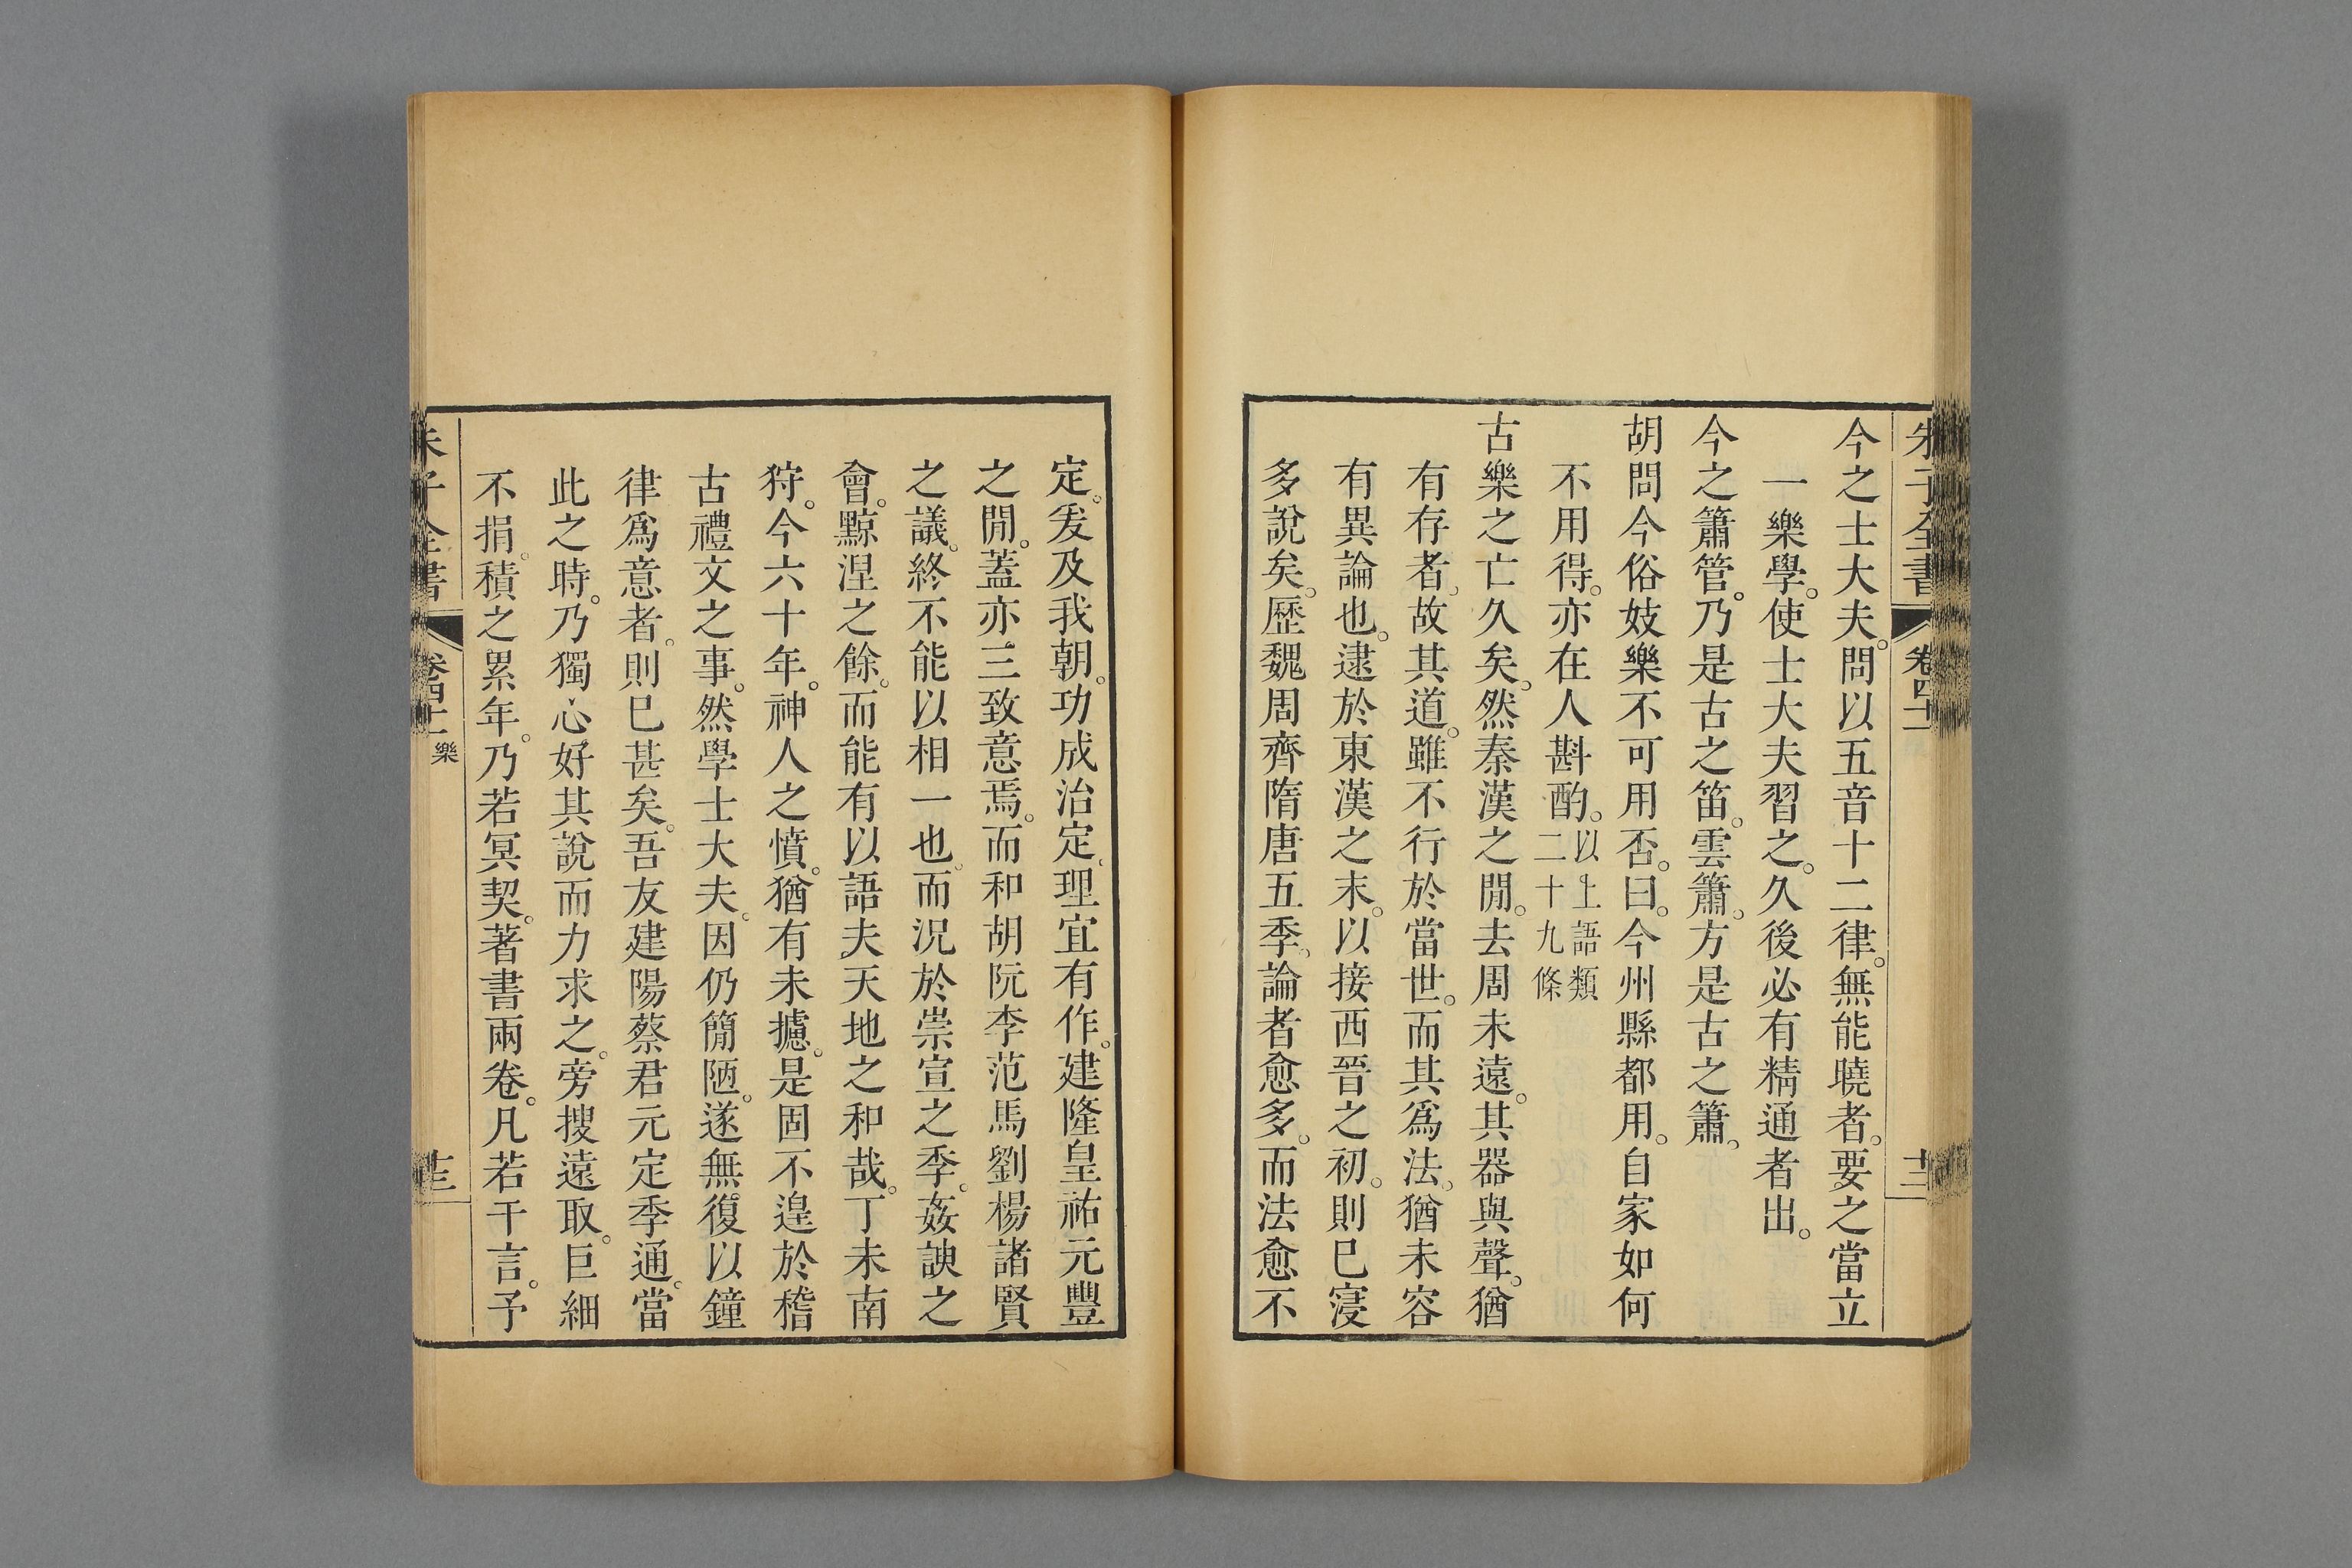 朱子全書 卷四十一 十二
今之士大夫。問以五音十二律。無能曉者。要之當立
一樂學。使士大夫習之。久後必有精通者出。
今之簫管。乃是古之笛。雲簫。方是古之簫。
胡問今俗妓樂不可用否。曰。今州縣都用。自家如何
不用得。亦在人斟酌。以上語類二十九條
古樂之亡久矣。然秦漢之閒。去周未遠。其器與聲。猶
有存者。故其道。雖不行於當世。而其爲法。猶未容
有異論也。逮於東漢之末。以接西晉之初。則已寖
多說矣。歷魏周齊隋唐五季。論者愈多。而法愈不
定。爰及我朝。功成治定。理宜有作。建隆皇祐元豐
之閒。蓋亦三致意焉。而和胡阮李范馬劉楊諸賢
之議。終不能以相一也。而況於崇宣之季。姦諛之
會。黥涅之餘。而能有以語夫天地之和哉。丁未南
狩。今六十年。神人之憤。猶有未攄。是固不遑於稽
古禮文之事。然學士大夫。因仍簡陋。遂無復以鐘
律爲意者。則已甚矣。吾友建陽蔡君元定季通。當
此之時。乃獨心好其說而力求之。旁搜遠取。巨細
不捐。積之累年。乃若冥契。著書兩卷。凡若干言。予
朱子全書 卷四十一 樂 十三